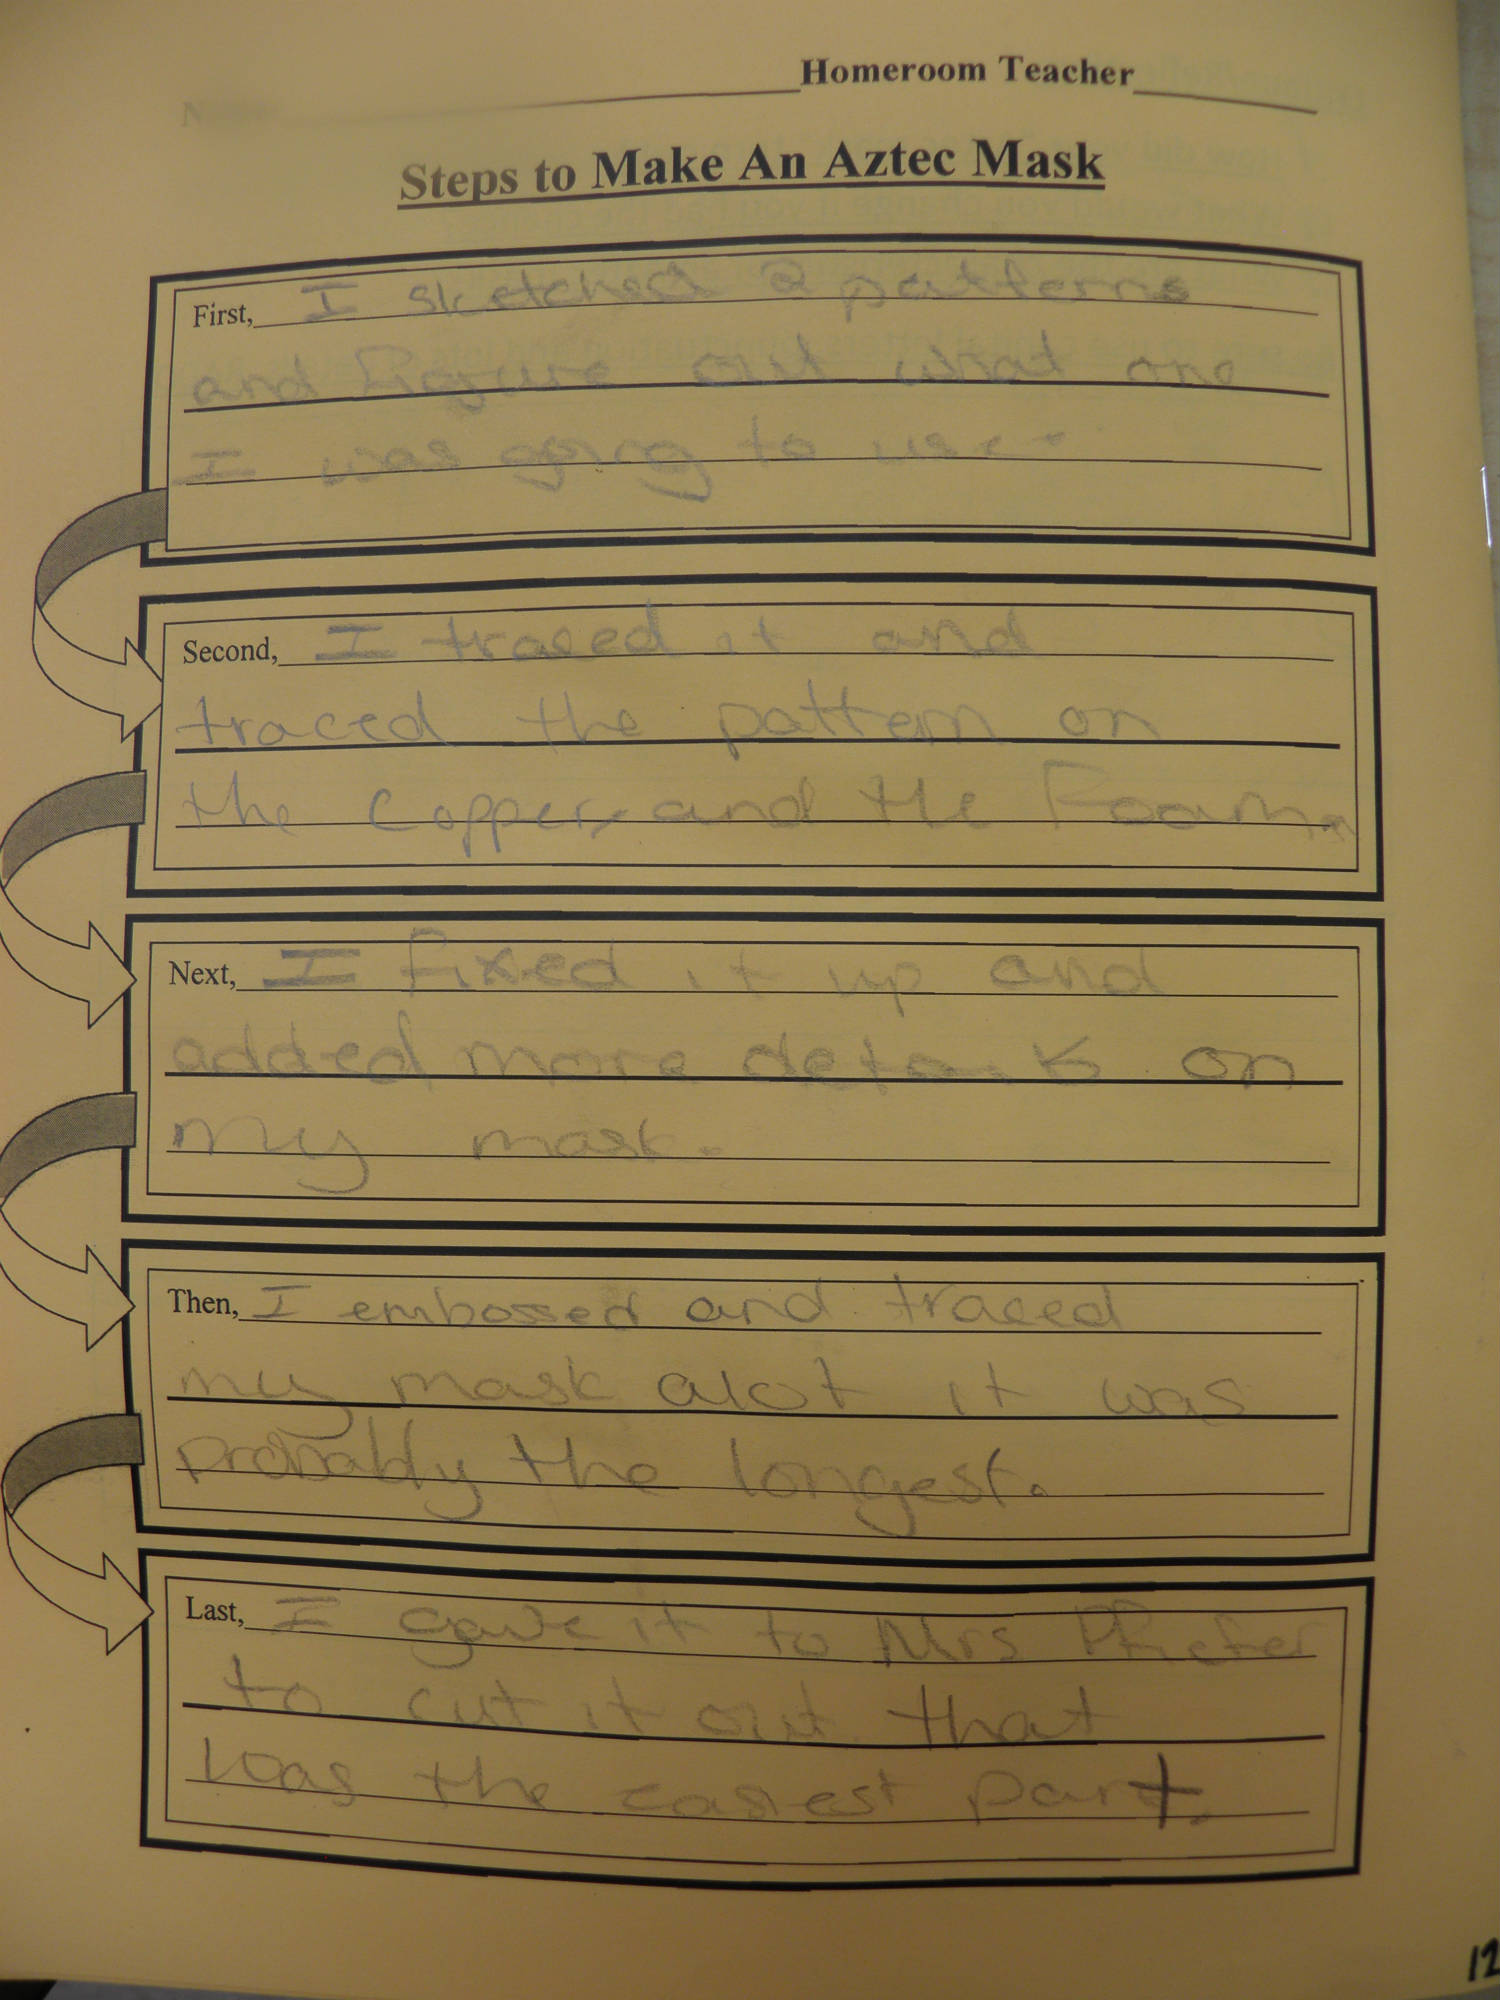 Homeroom Teacher
Steps to Make An Aztec Mask
First, I sketched 2 patterns
and figure out what one
I was going to use.
Second, I traced it and
traced the pattern on
the copper, and the Foam.
Next, I fixed it up and
added more details on
my mask.
Then, I embossed and traced
my mask alot it was
probably the longest.
Last, I gave it to Mrs
to cut it out that
was the easiest part.
12